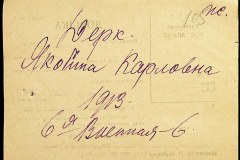 105 пс.
Дерк.
Якобина Карловна
1913
6я Военная-6